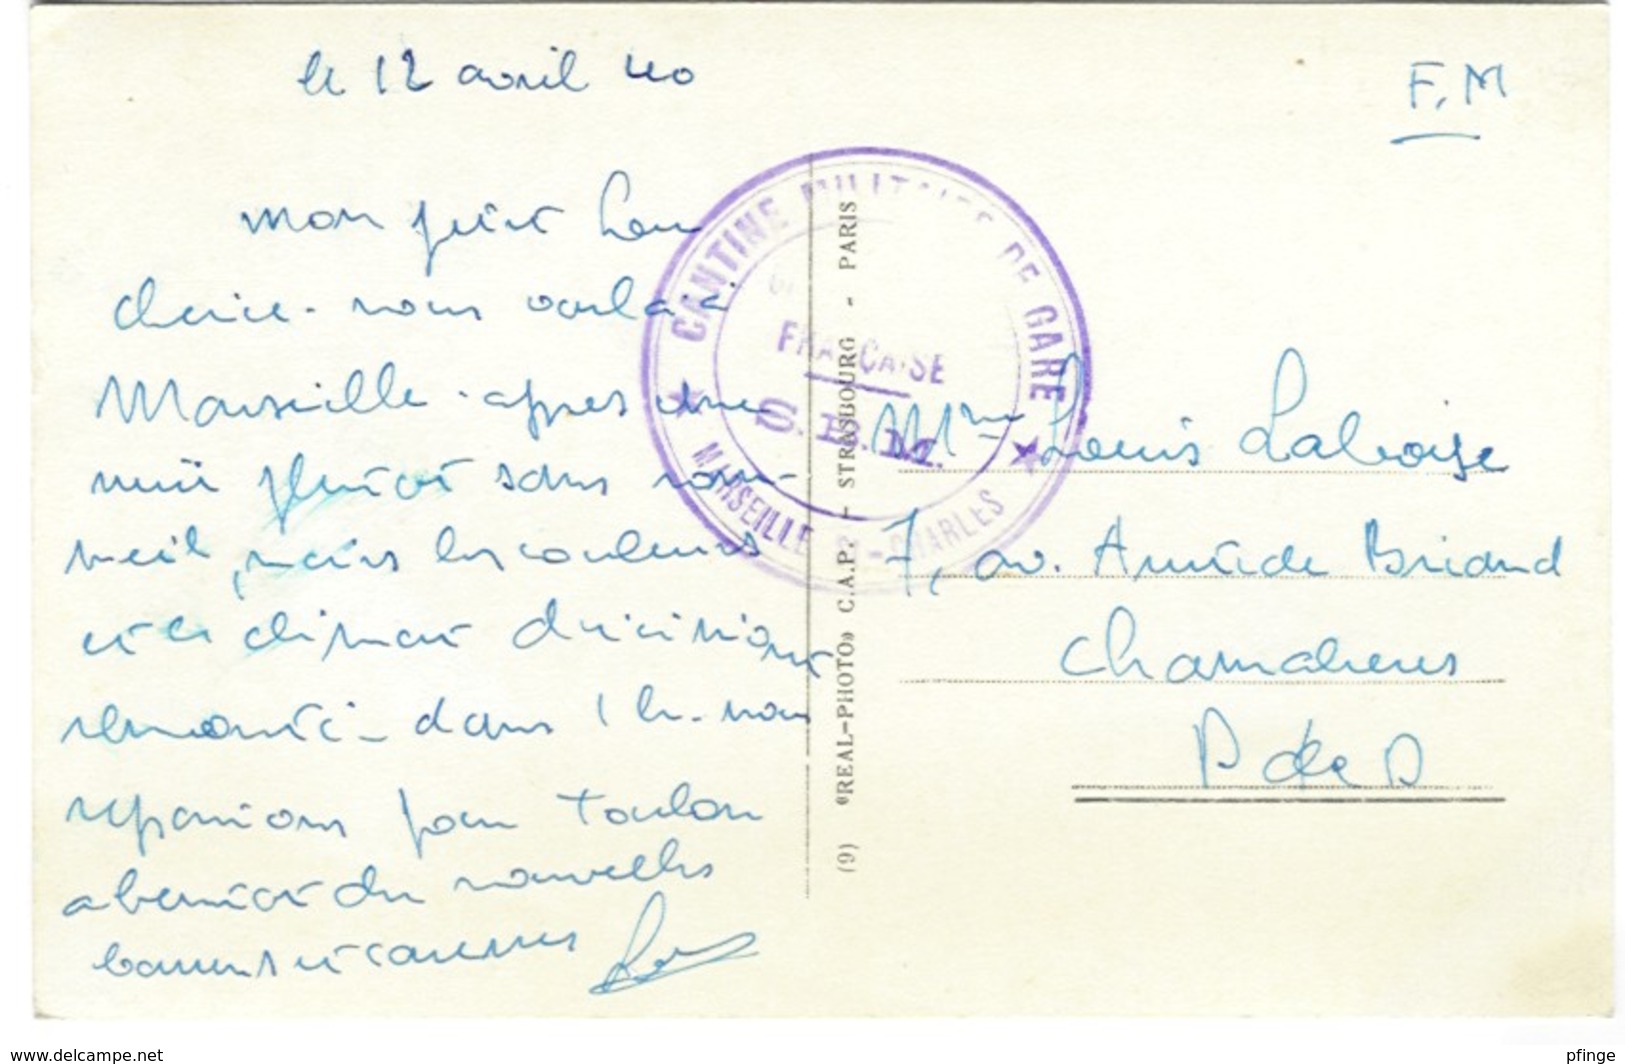 le 12 avril 40
F.M
mon petit Lou
cherie - nous voila à
Marseille - apres une
nuit sans som-
meil, mais les couleurs
et le climat
remonté - dans 1 h - nous
repartons pour Toulon
a bientot des nouvelles
baisers et caresses
CANTINE MILITAIRE DE GARE
FRANÇAISE
S.B.M.
MARSEILLE St-CHARLES
Mme Louis Laboise
7, av. Aristide Briand
Chamalieres
P de D
(9) «REAL-PHOTO» C.A.P. - STRASBOURG - PARIS
www.delcampe.net
pfinge